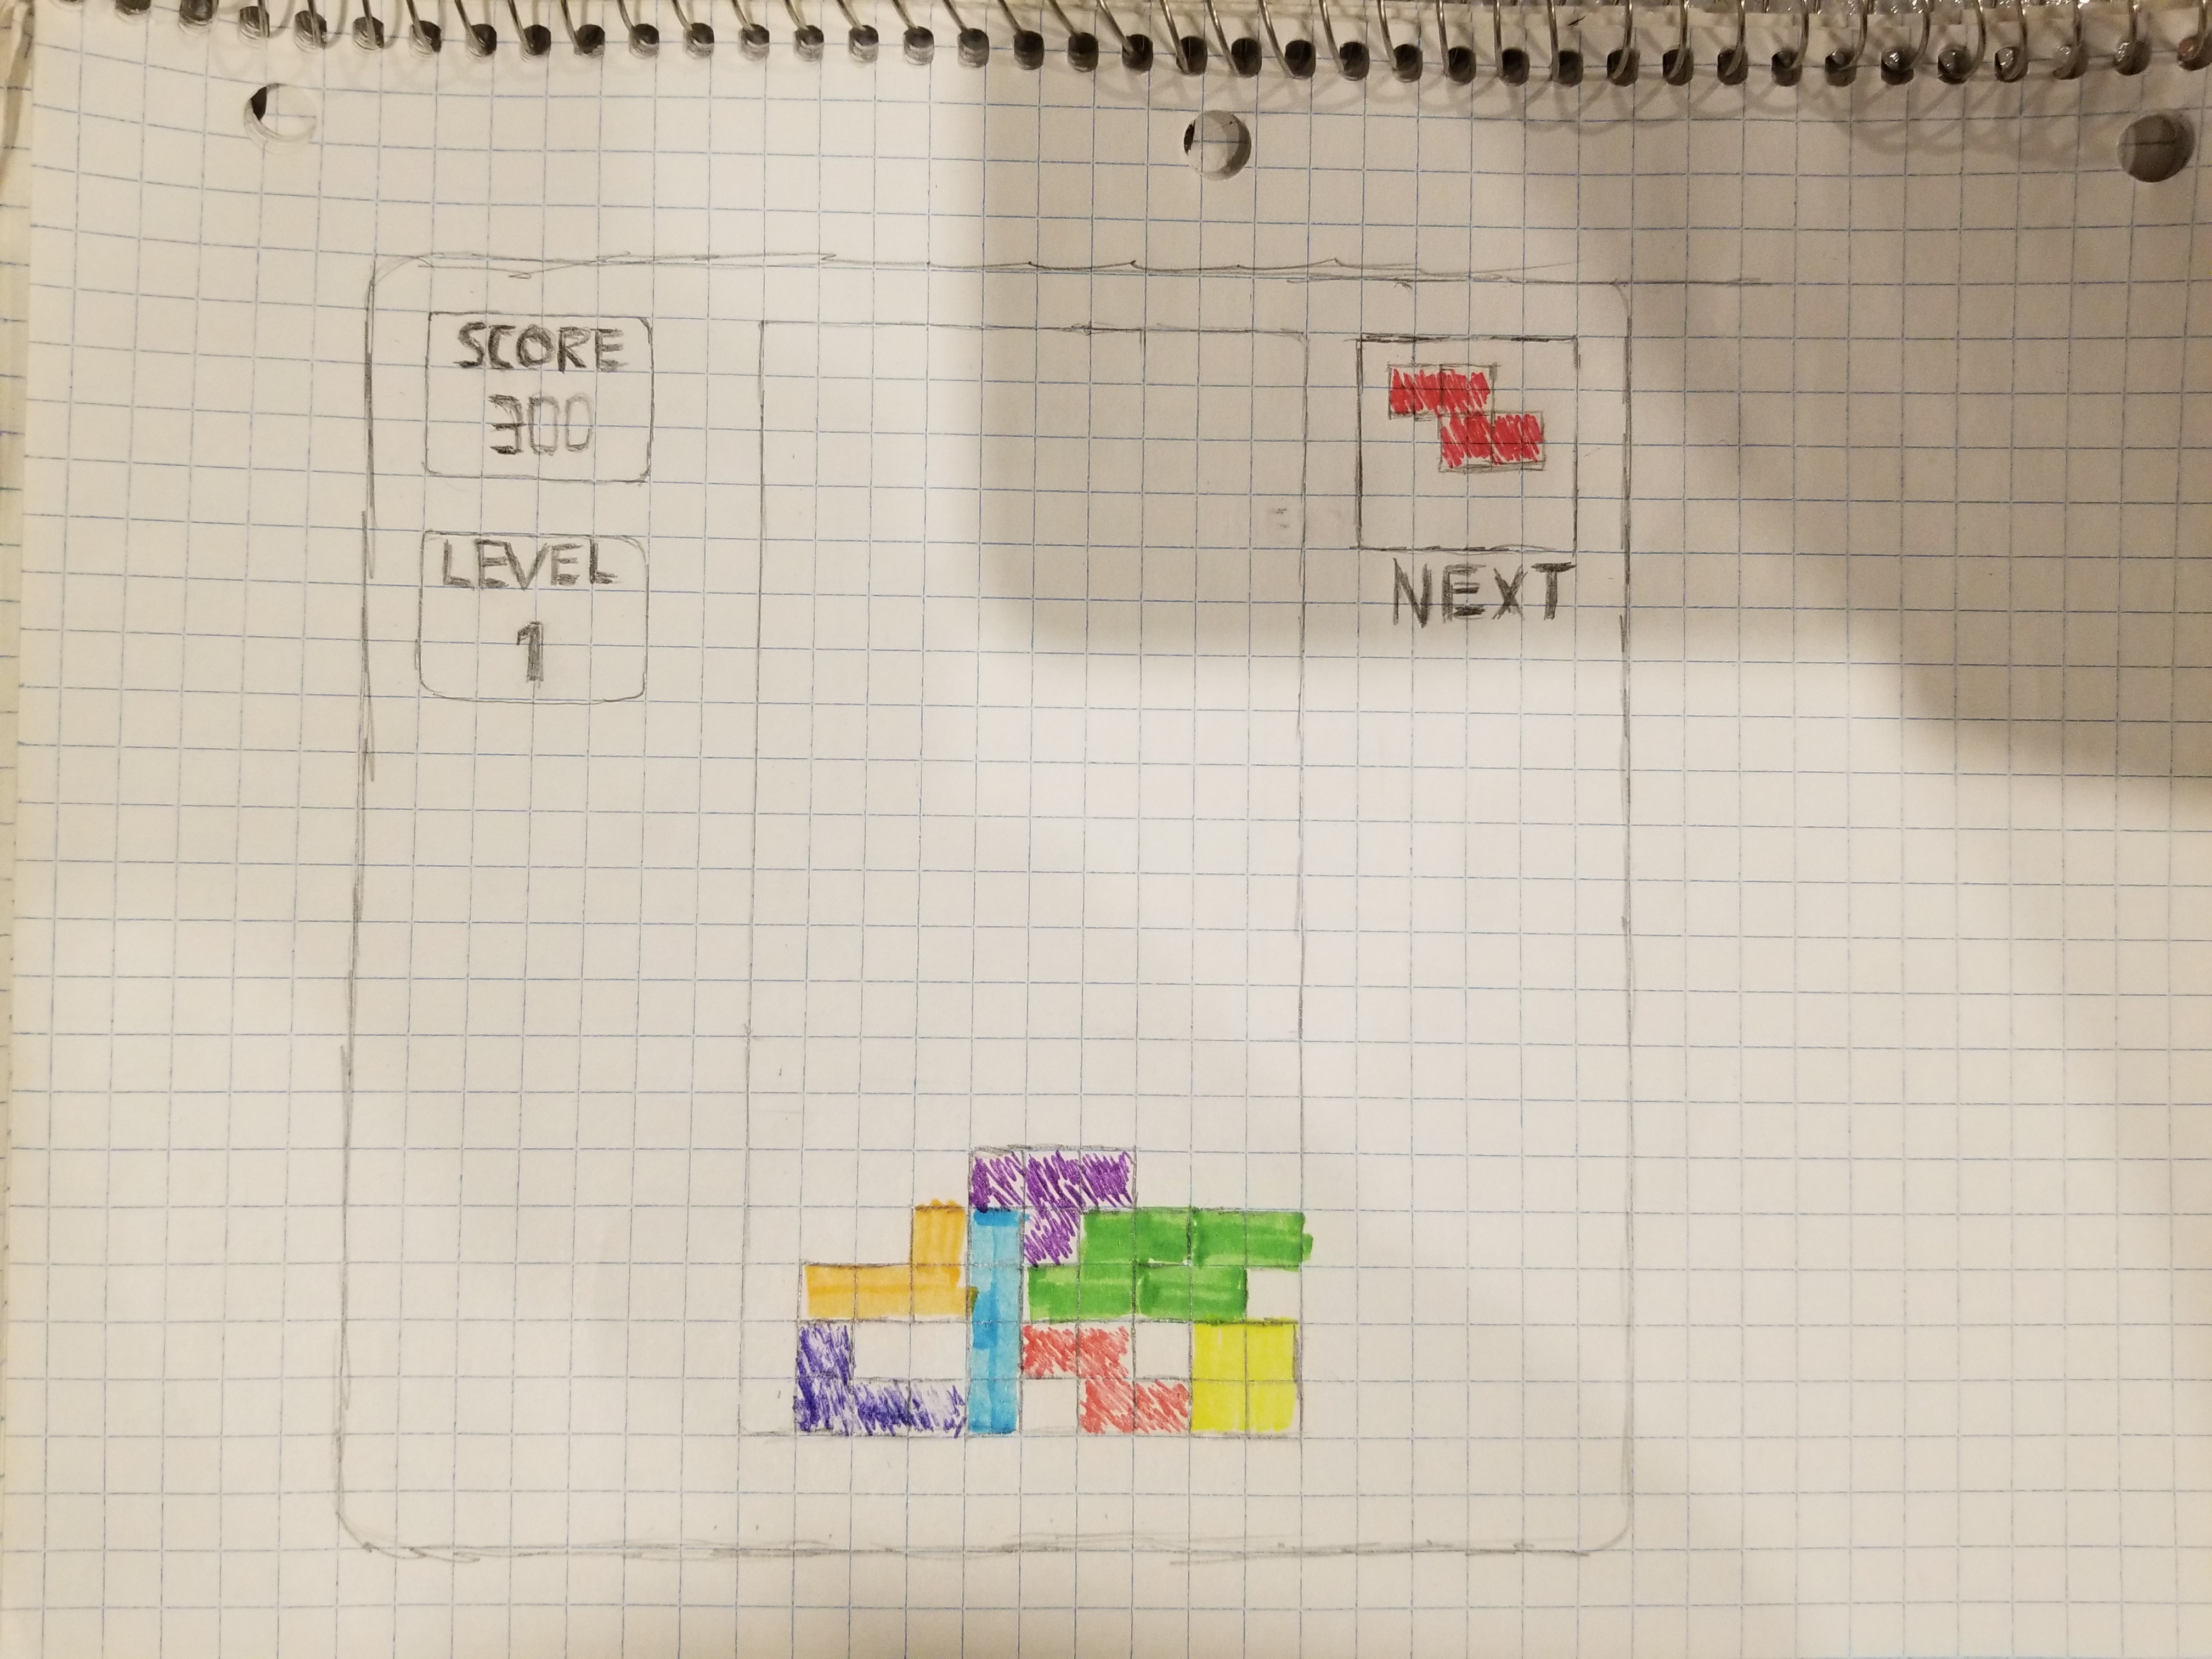 SCORE
300
LEVEL
1
NEXT